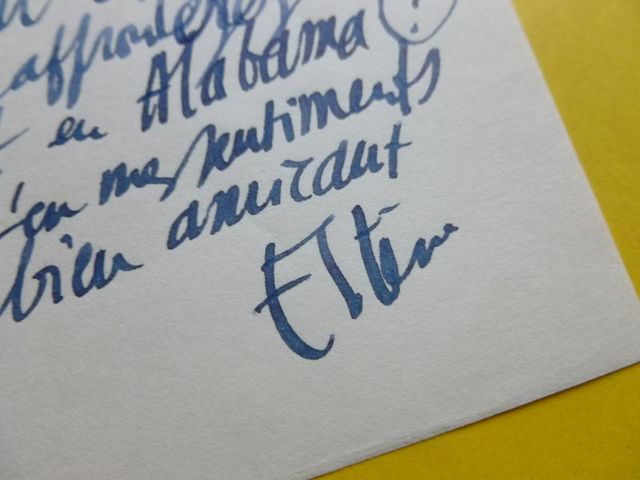 affronter
en Alabama !
en mes sentiments
bien amicaut